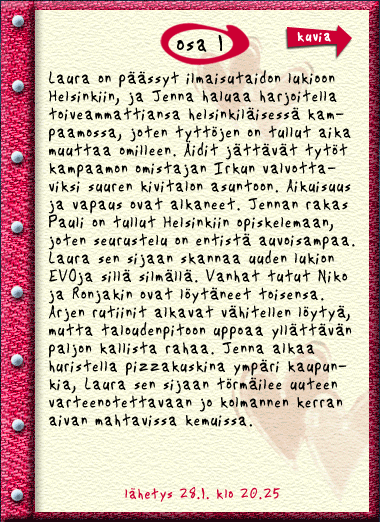 osa 1
kuvia
Laura on päässyt ilmaisutaidon lukioon
Helsinkiin, ja Jenna haluaa harjoitella
toiveammattiansa helsinkiläisessä kam-
paamossa, joten tyttöjen on tullut aika
muuttaa omilleen. Äidit jättävät tytöt
kampaamon omistajan Irkun valvotta-
viksi suuren kivitalon asuntoon. Aikuisuus
ja vapaus ovat alkaneet. Jennan rakas
Pauli on tullut Helsinkiin opiskelemaan,
joten seurustelu on entistä auvoisampaa.
Laura sen sijaan skannaa uuden lukion
EVOja sillä silmällä. Vanhat tutut Niko
ja Ronjakin ovat löytäneet toisensa.
Arjen rutiinit alkavat vähitellen löytyä,
mutta taloudenpitoon uppoaa yllättävän
paljon kallista rahaa. Jenna alkaa
huristella pizzakuskina ympäri kaupun-
kia, Laura sen sijaan törmäilee uuteen
varteenotettavaan jo kolmannen kerran
aivan mahtavissa kemuissa.
lähetys 28.1. klo 20.25